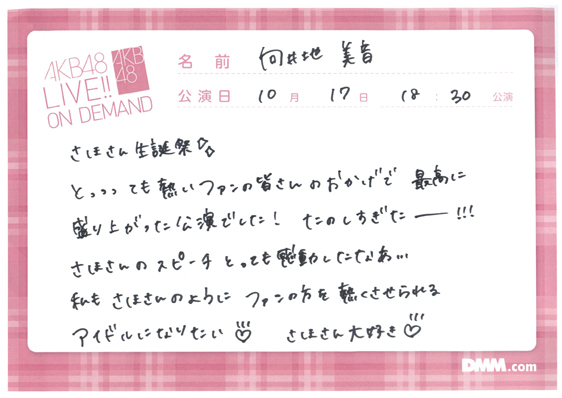 AKB48
LIVE!!
ON DEMAND
AKB
48
名前 向井地 美音
公演日 10月 17日 18:30 公演
さほさん生誕祭♡♡
とっっっても熱いファンの皆さんのおかげで 最高に
盛り上がった公演でした! たのしすぎたー!!!
さほさんのスピーチとっても感動したなあ...
私もさほさんのように ファンの方を熱くさせられる
アイドルになりたい♡ さほさん大好き♡
DMM.com